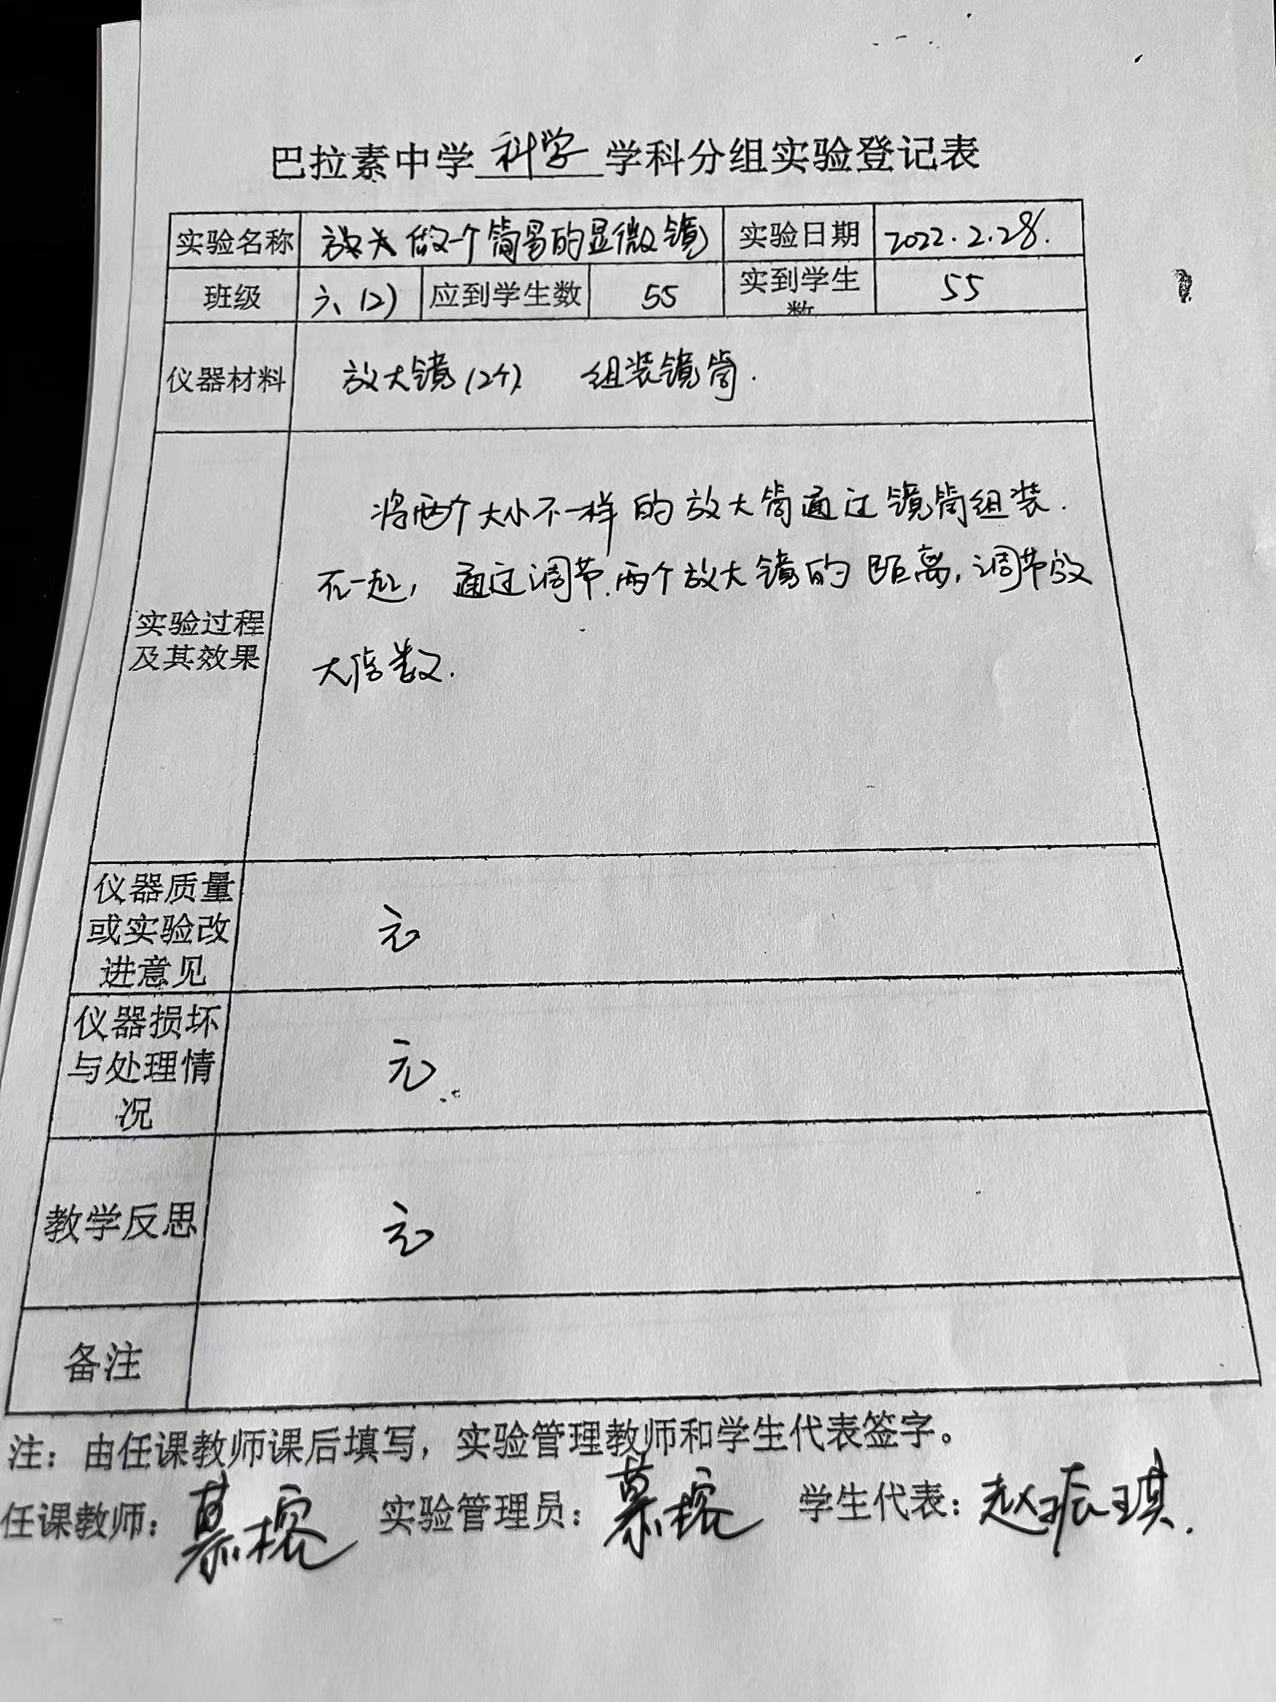 巴拉素中学 科学 学科分组实验登记表
实验名称 放大 做一个简易的显微镜 实验日期 2022.2.28.
班级 六、(2) 应到学生数 55 实到学生数 55
仪器材料 放大镜(2个) 组装镜筒.
将两个大小不一样的放大筒通过镜筒组装.
在一起,通过调节.两个放大镜的距离,调节放
大倍数.
实验过程
及其效果
仪器质量
或实验改
进意见
无
仪器损坏
与处理情
况
无
教学反思 无
备注
注:由任课教师课后填写,实验管理教师和学生代表签字。
任课教师:慕榕 实验管理员:慕榕 学生代表:赵振琪.